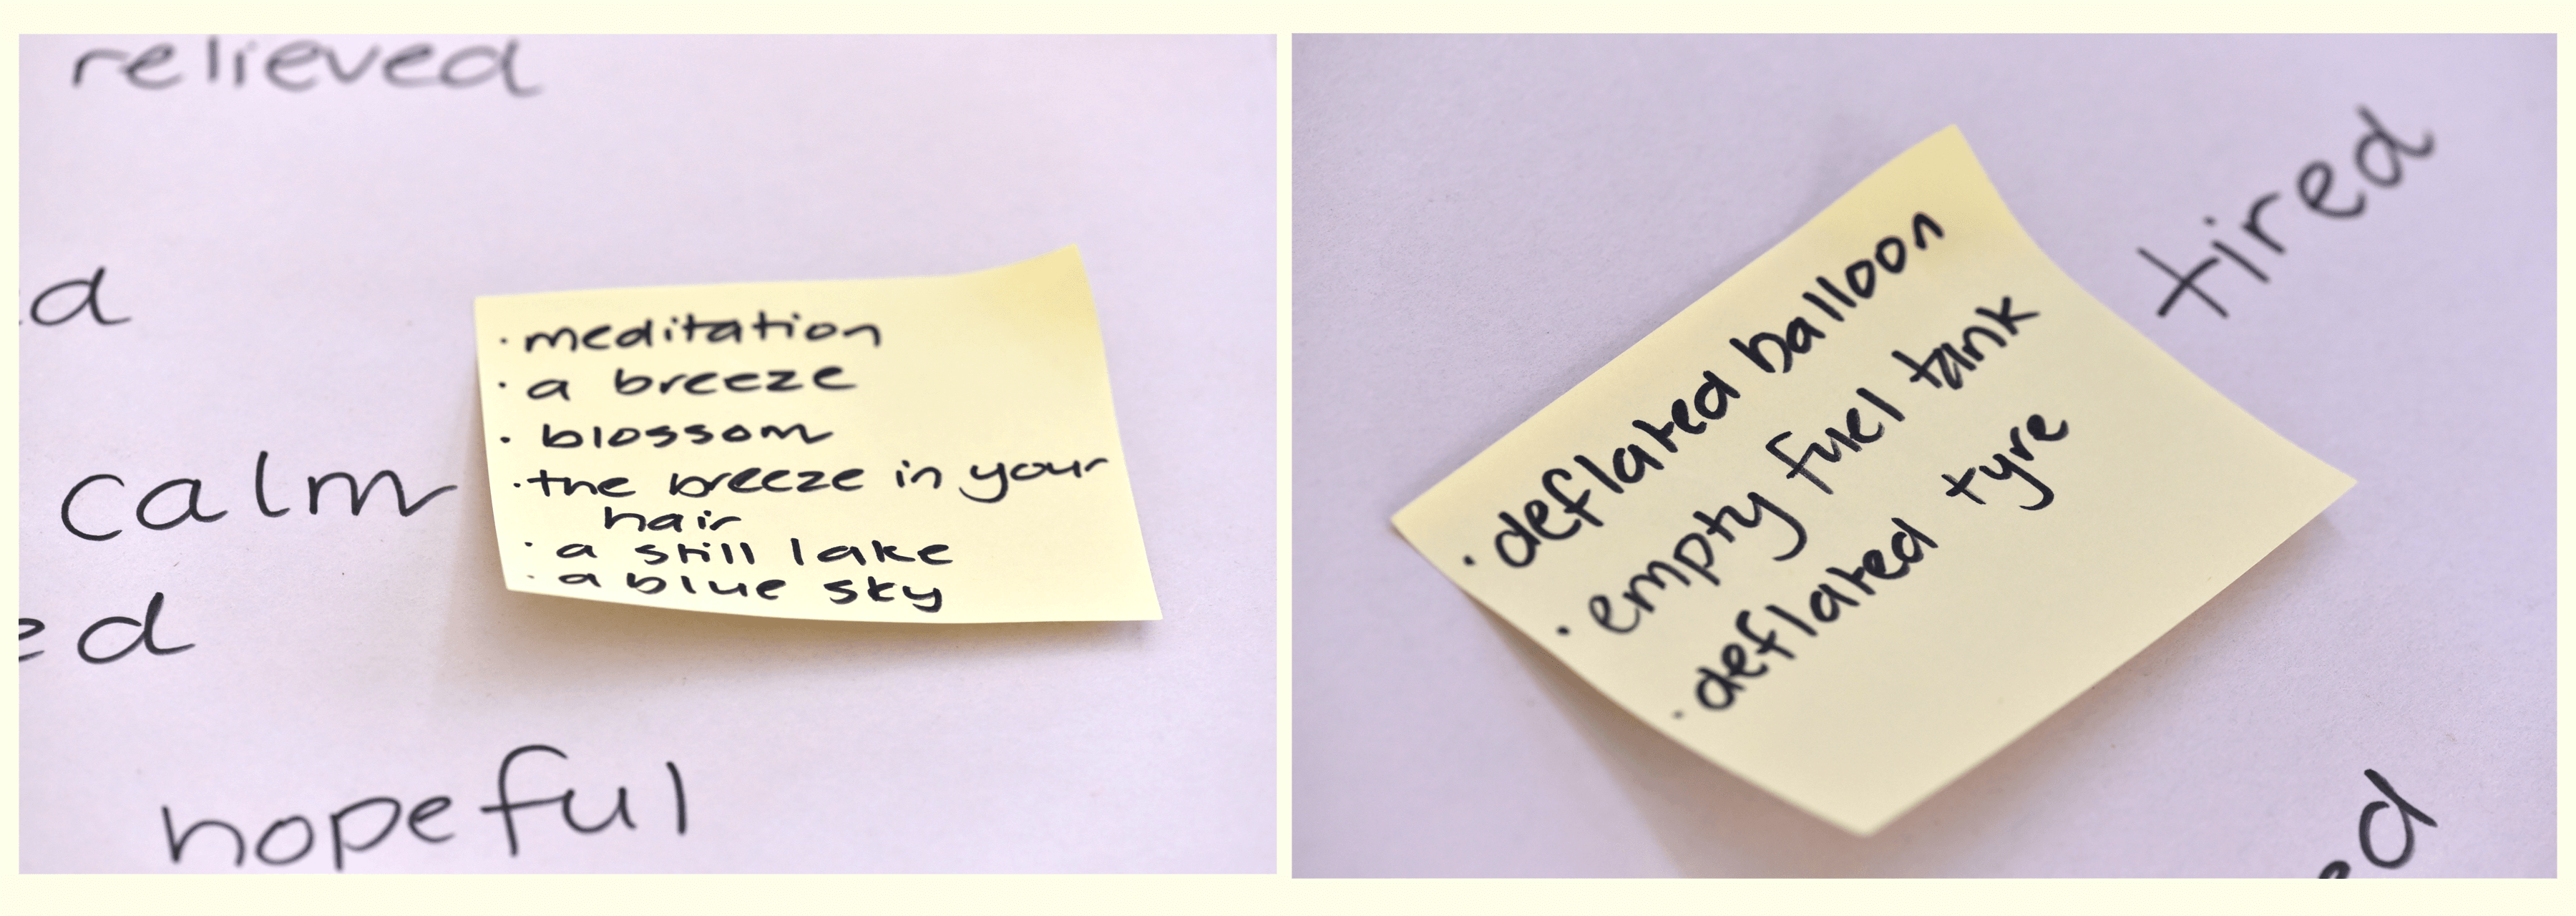 relieved
d
· meditation
· a breeze
· blossom
· the breeze in your
hair
· a still lake
· a blue sky
calm
ed
hopeful
tired
· deflated balloon
· empty fuel tank
· deflated tyre
ed